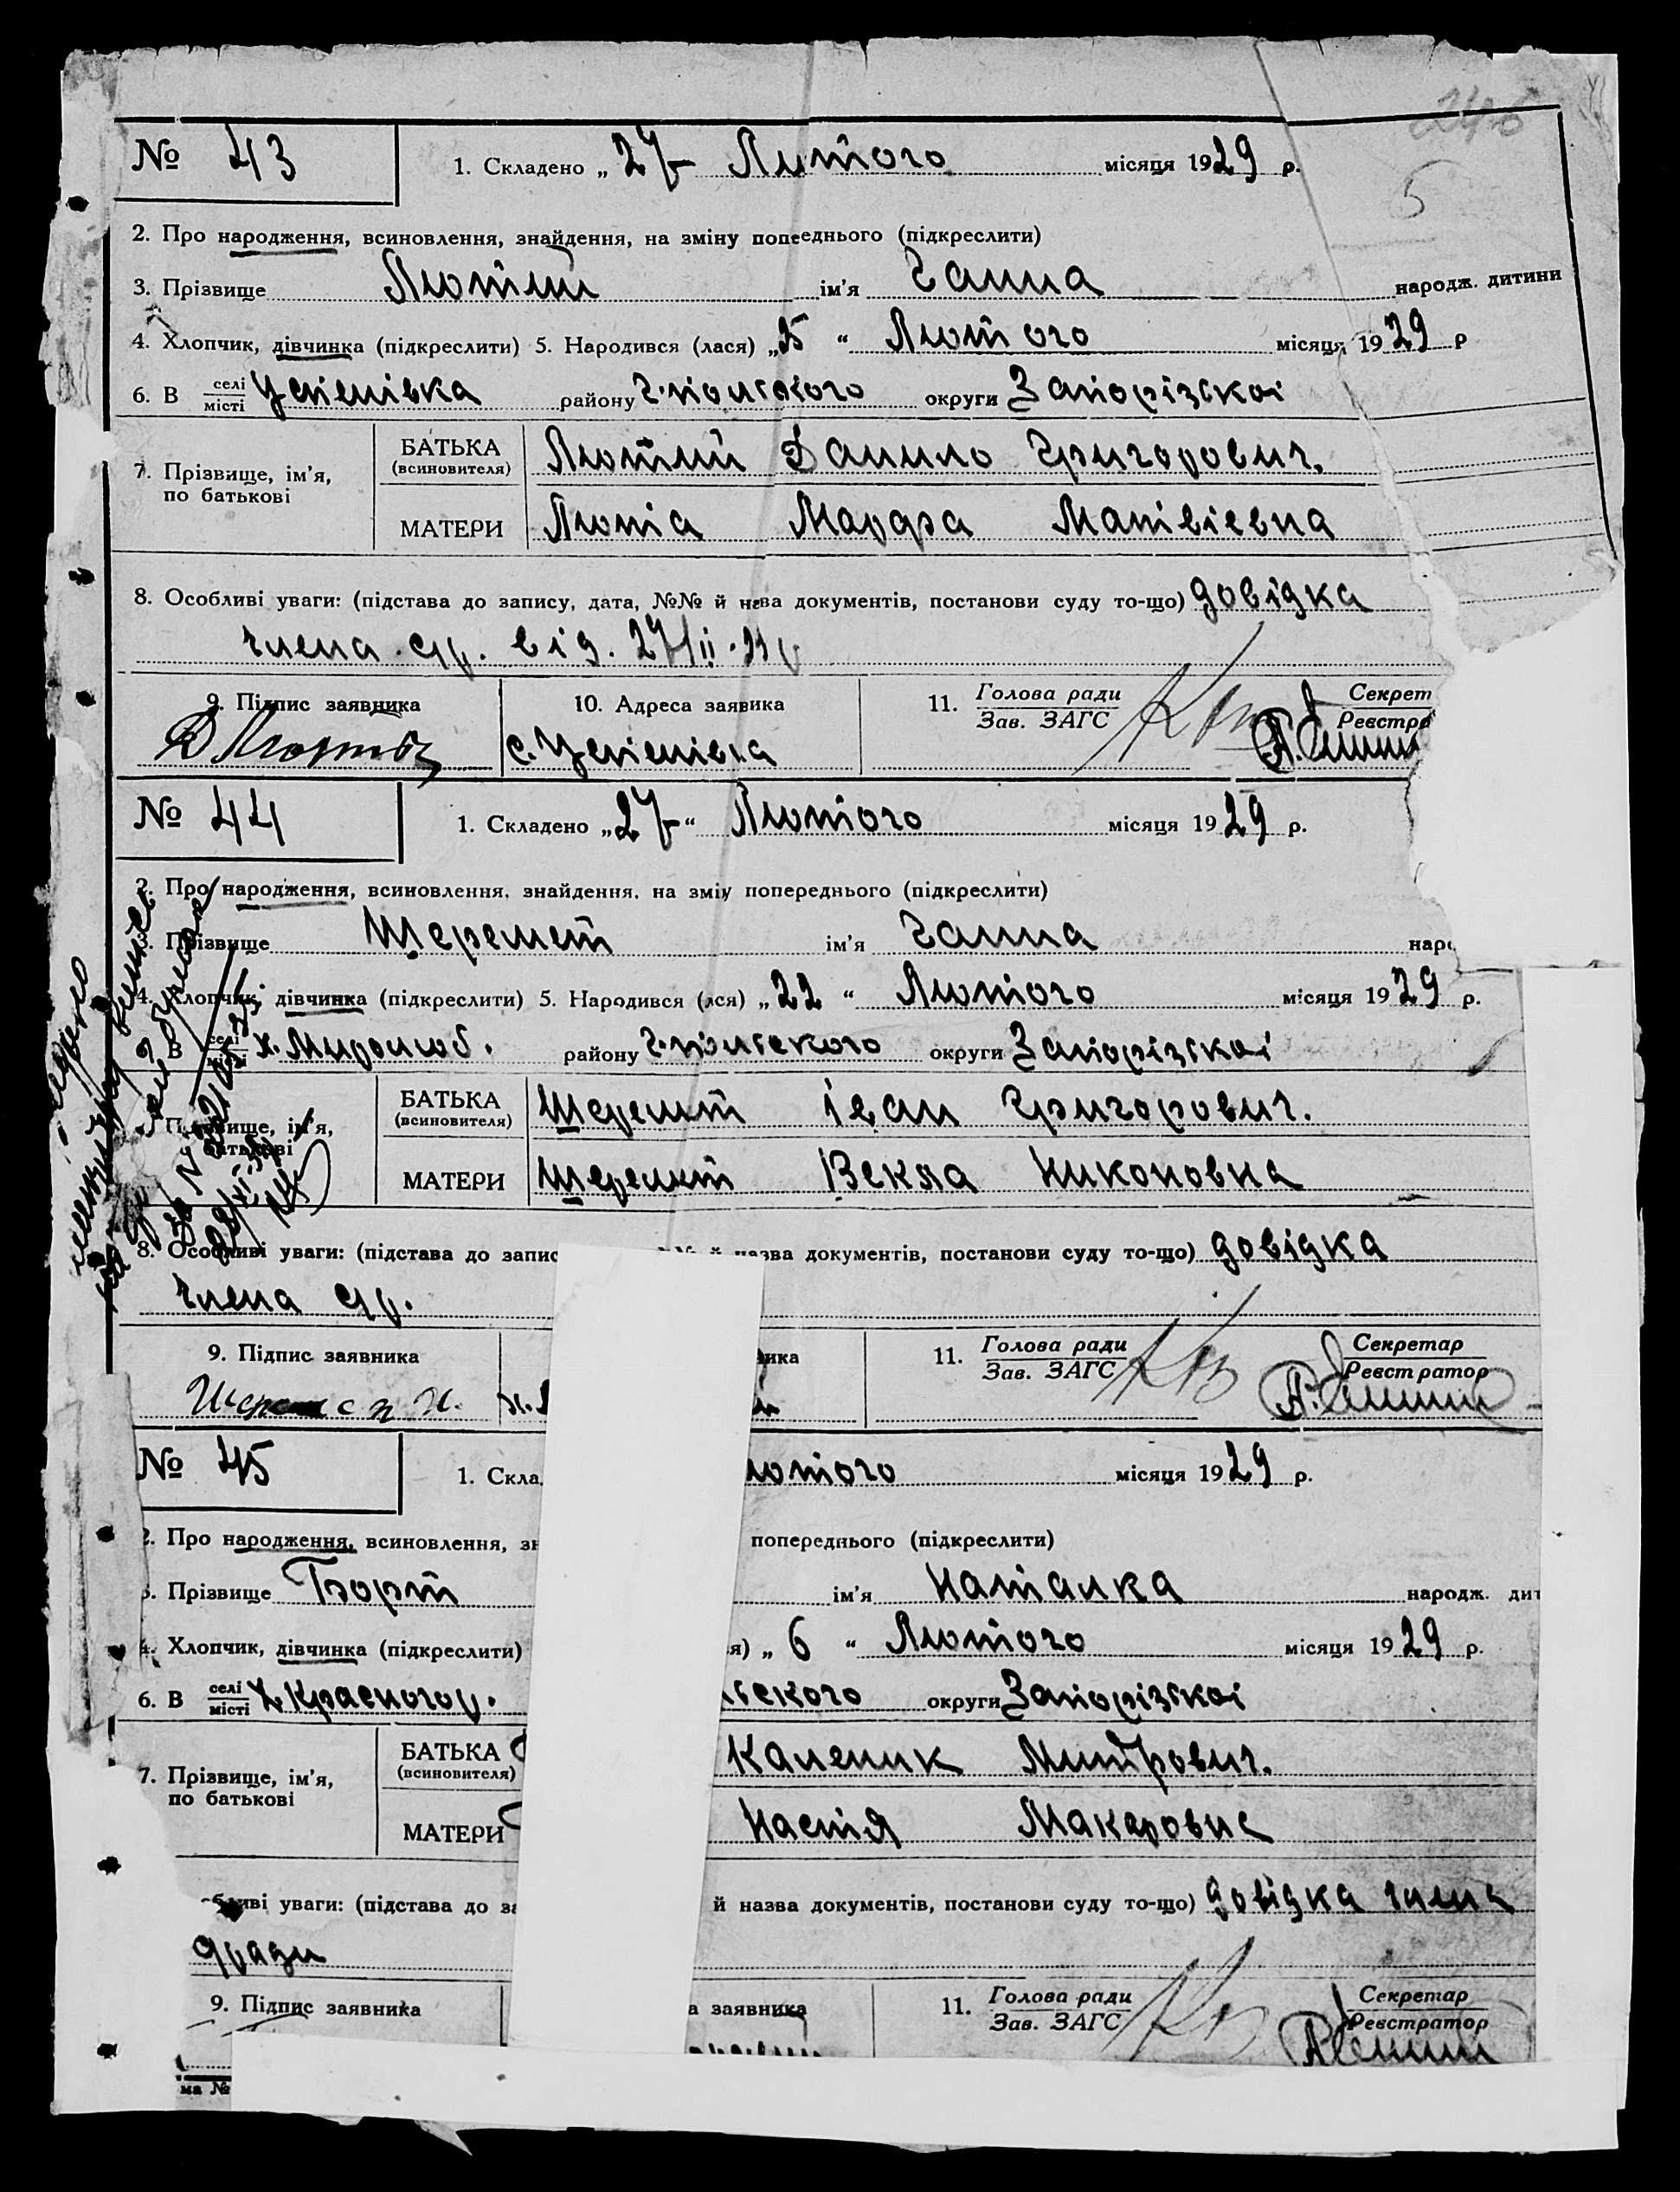 245
5
№ 43 1. Складено „ 27 Лютого місяця 1929 р.
2. Про народження, всиновлення, знайдення, на зміну попееднього (підкреслити)
3. Прізвище Лютий ім'я Ганна народж. дитини
4. Хлопчик, дівчинка (підкреслити) 5. Народився (лася) „25 “ Лютого місяця 1929 р
6. В селі місті Успенівка району Г.-польського округи Запорізскоі
7. Прізвище, ім'я, по батькові
БАТЬКА (всиновителя) Лютий Данило Григорович.
МАТЕРИ Люта Марфа Матвіевна
8. Особливі уваги: (підстава до запису, дата, №№ й нава документів, постанови суду то-що) довідка
члена с/р. від. 27/II.29 р
9. Підпис заявника 10. Адреса заявика 11. Голова ради Секрет
Зав. ЗАГС Реєстра
Д Лютый с. Успенівка
№ 44 1. Складено „27“ Лютого місяця 1929 р.
2. Про народження, всиновлення, знайдення, на зміу попереднього (підкреслити)
3. Прізвище Шеремет ім'я Ганна наро
4. Хлопчик, дівчинка (підкреслити) 5. Народився (лся) „22 “ Лютого місяця 1929 р.
В селі місті х. району Г.-польского округи Запорізскоі
Прізвище, ім'я, батькові
БАТЬКА (всиновителя) Шеремет Іван Григорович.
МАТЕРИ Шеремет Векла Никоновна
8. Особливі уваги: (підстава до запис й назва документів, постанови суду то-що) довідка
члена с/р.
9. Підпис заявника ника 11. Голова ради Секретар
Зав. ЗАГС Реєстратор
№ 45 1. Скла ютого місяця 1929 р.
2. Про народження, всиновлення, зн попереднього (підкреслити)
3. Прізвище Борт ім'я Наталка народж. дит
4. Хлопчик, дівчинка (підкреслити) я) „ 6 “ Лютого місяця 1929 р.
6. В селі місті х. Красногор. ьского округи Запорізскоі
7. Прізвище, ім'я, по батькові
БАТЬКА (всиновителя) Каленик Митрович.
МАТЕРИ Настя Макаровна
обливі уваги: (підстава до за й назва документів, постанови суду то-що) довідка члена
с/ради
9. Підпис заявника а заявника 11. Голова ради Секретар
Зав. ЗАГС Реєстратор
ма №